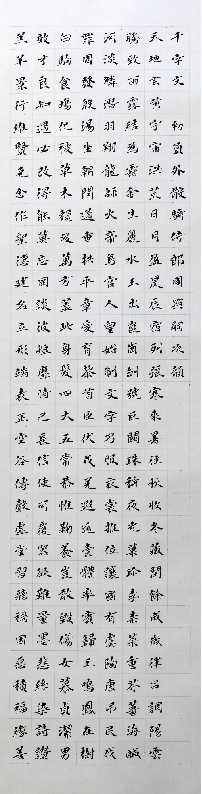 千字文 勑員外散騎侍郎周興嗣次韻
天地玄黃宇宙洪荒日月盈昃辰宿列張寒來暑往秋收冬藏閏餘成歲律呂調陽雲
騰致雨露結為霜金生麗水玉出崑岡劍號巨闕珠稱夜光果珍李柰菜重芥薑海鹹
河淡鱗潛羽翔龍師火帝鳥官人皇始制文字乃服衣裳推位讓國有虞陶唐弔民伐
罪周發殷湯坐朝問道垂拱平章愛育黎首臣伏戎羌遐邇壹體率賓歸王鳴鳳在樹
白駒食場化被草木賴及萬方蓋此身髮四大五常恭惟鞠養豈敢毀傷女慕貞潔男
效才良知過必改得能莫忘罔談彼短靡恃己長信使可覆器欲難量墨悲絲染詩讚
羔羊景行維賢克念作聖德建名立形端表正空谷傳聲虛堂習聽禍因惡積福緣善